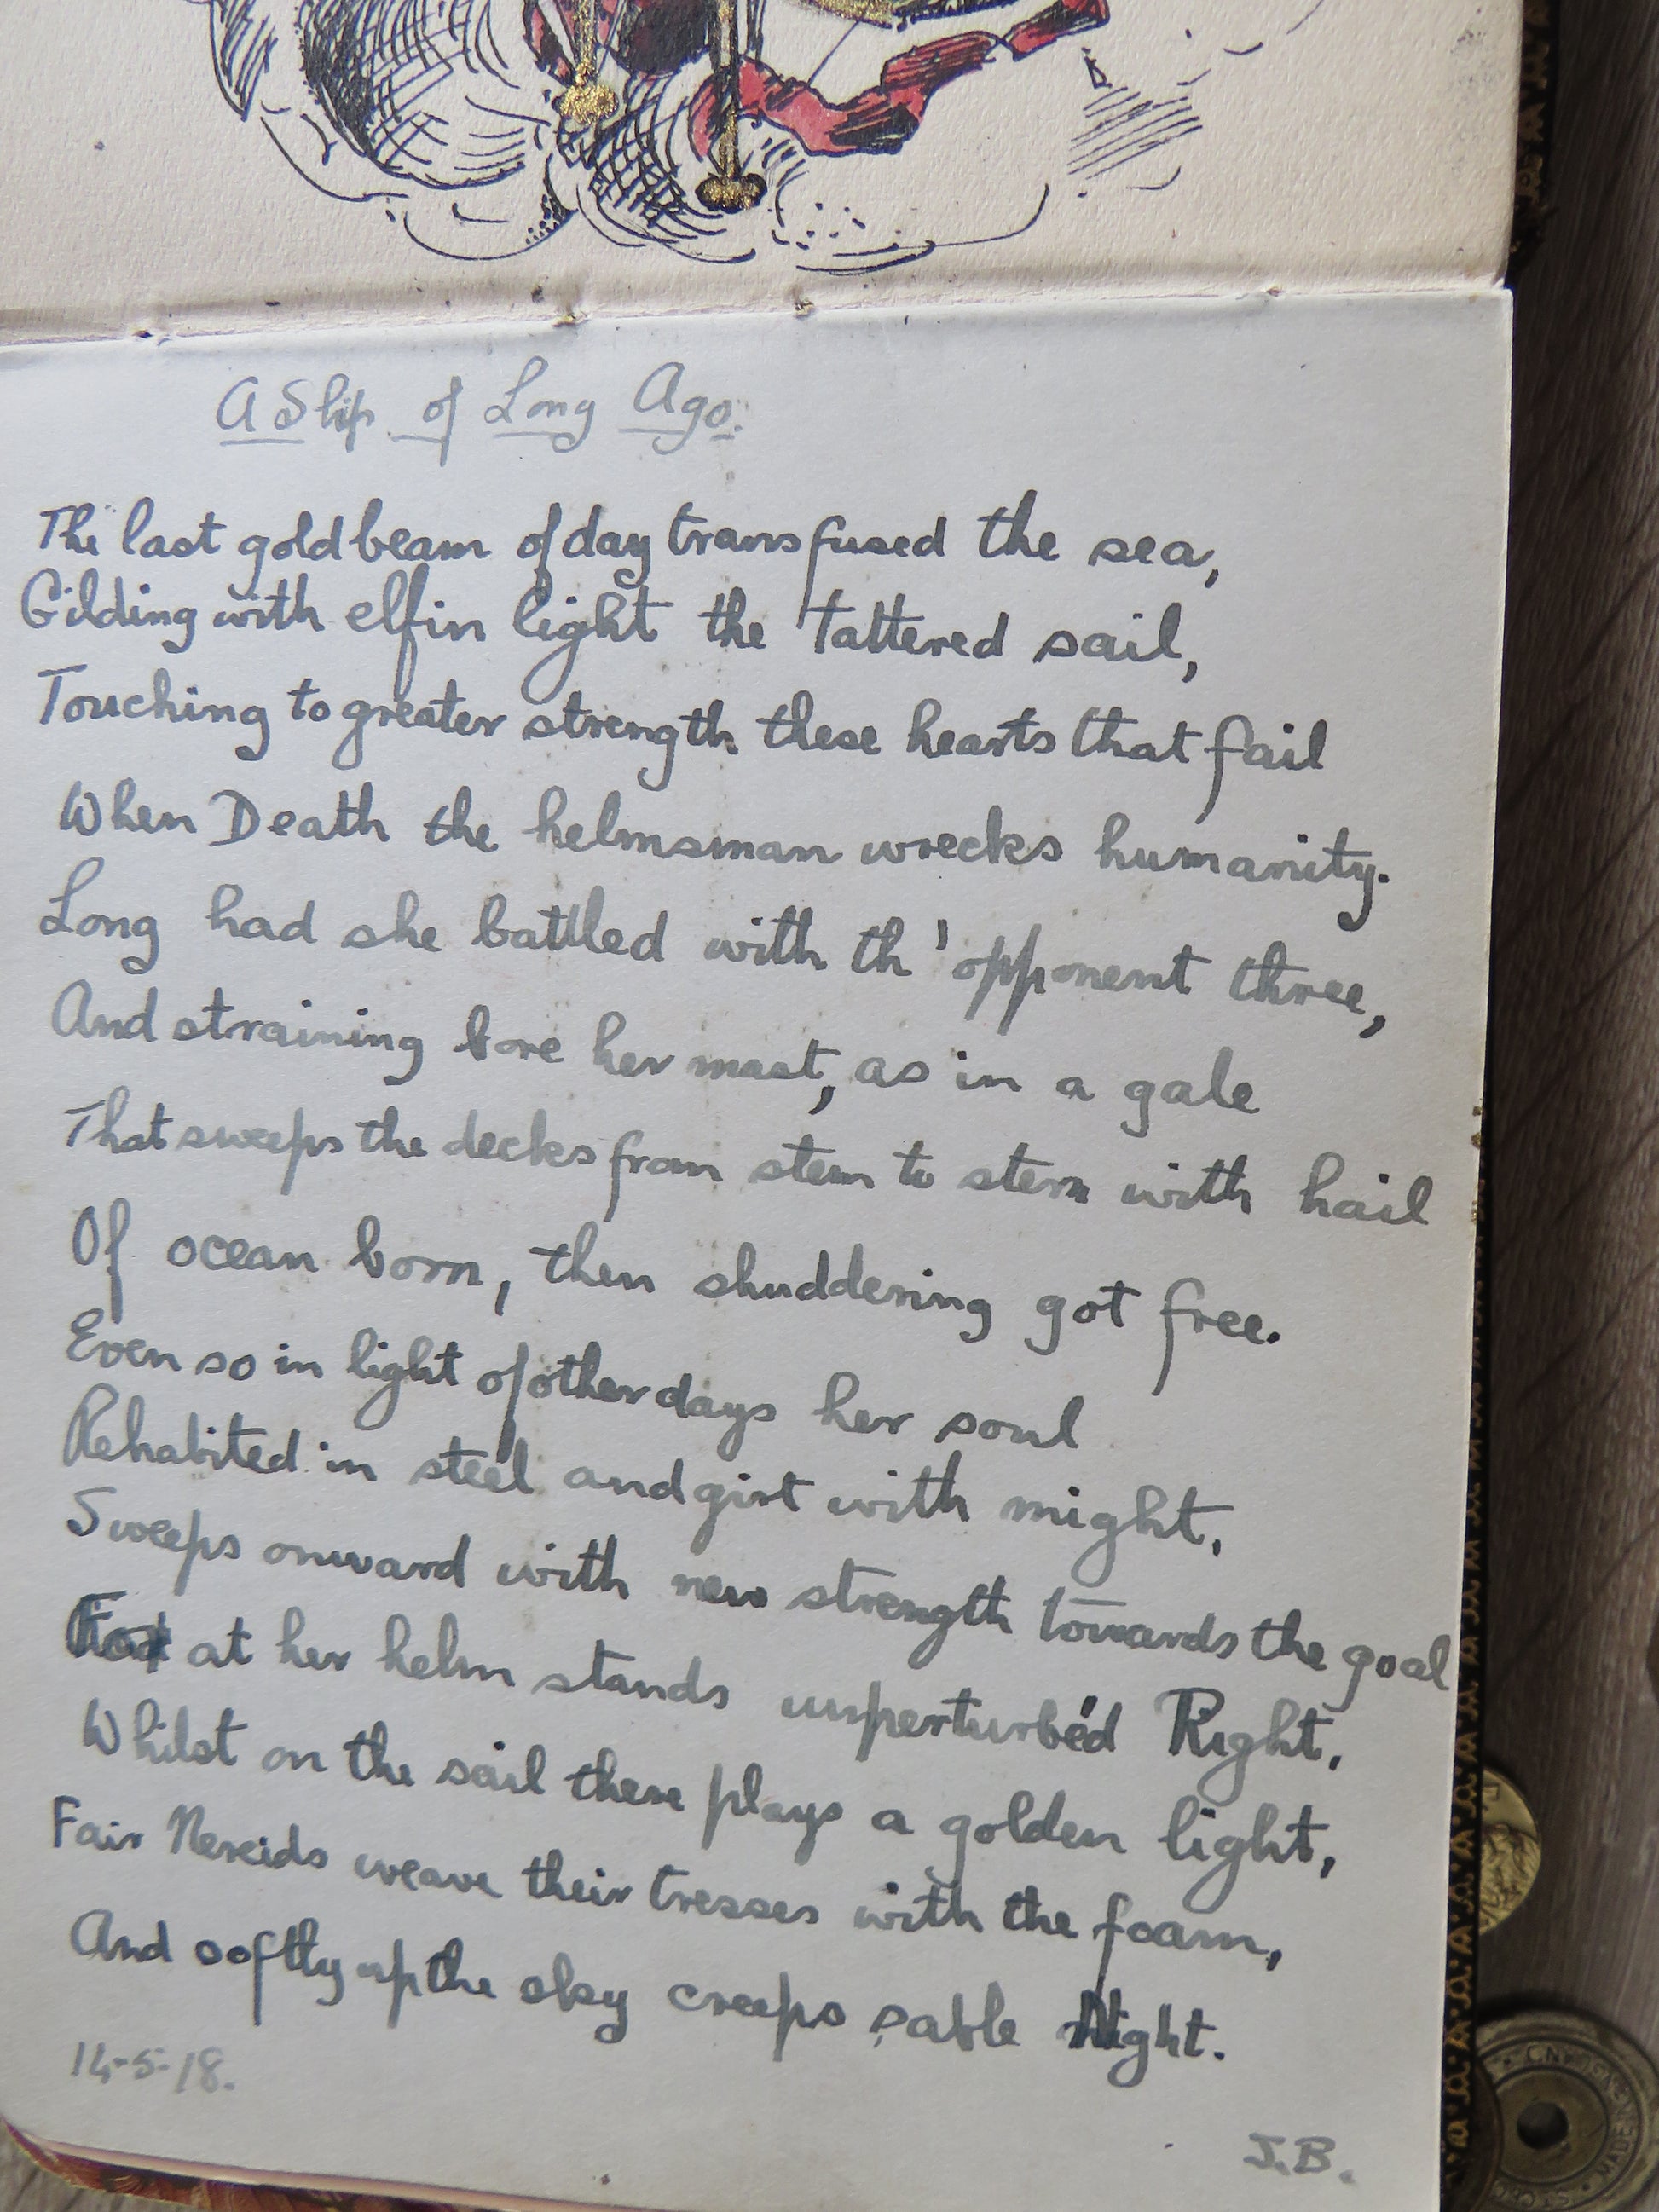 A Ship of Long Ago.
The last gold beam of day transfused the sea,
Gilding with elfin light the tattered sail,
Touching to greater strength these hearts that fail
When Death the helmsman wrecks humanity.
Long had she battled with th' opponent three,
And straining bore her mast, as in a gale
That sweeps the decks from stem to stern with hail
Of ocean born, then shuddering got free.
Even so in light of other days her soul
Rehabited in steel and girt with might,
Sweeps onward with new strength towards the goal
For at her helm stands unperturbéd Right,
Whilst on the sail there plays a golden light,
Fair Nereids weave their tresses with the foam,
And softly up the sky creeps sable Night.
14-5-18.
J.B.
MADE